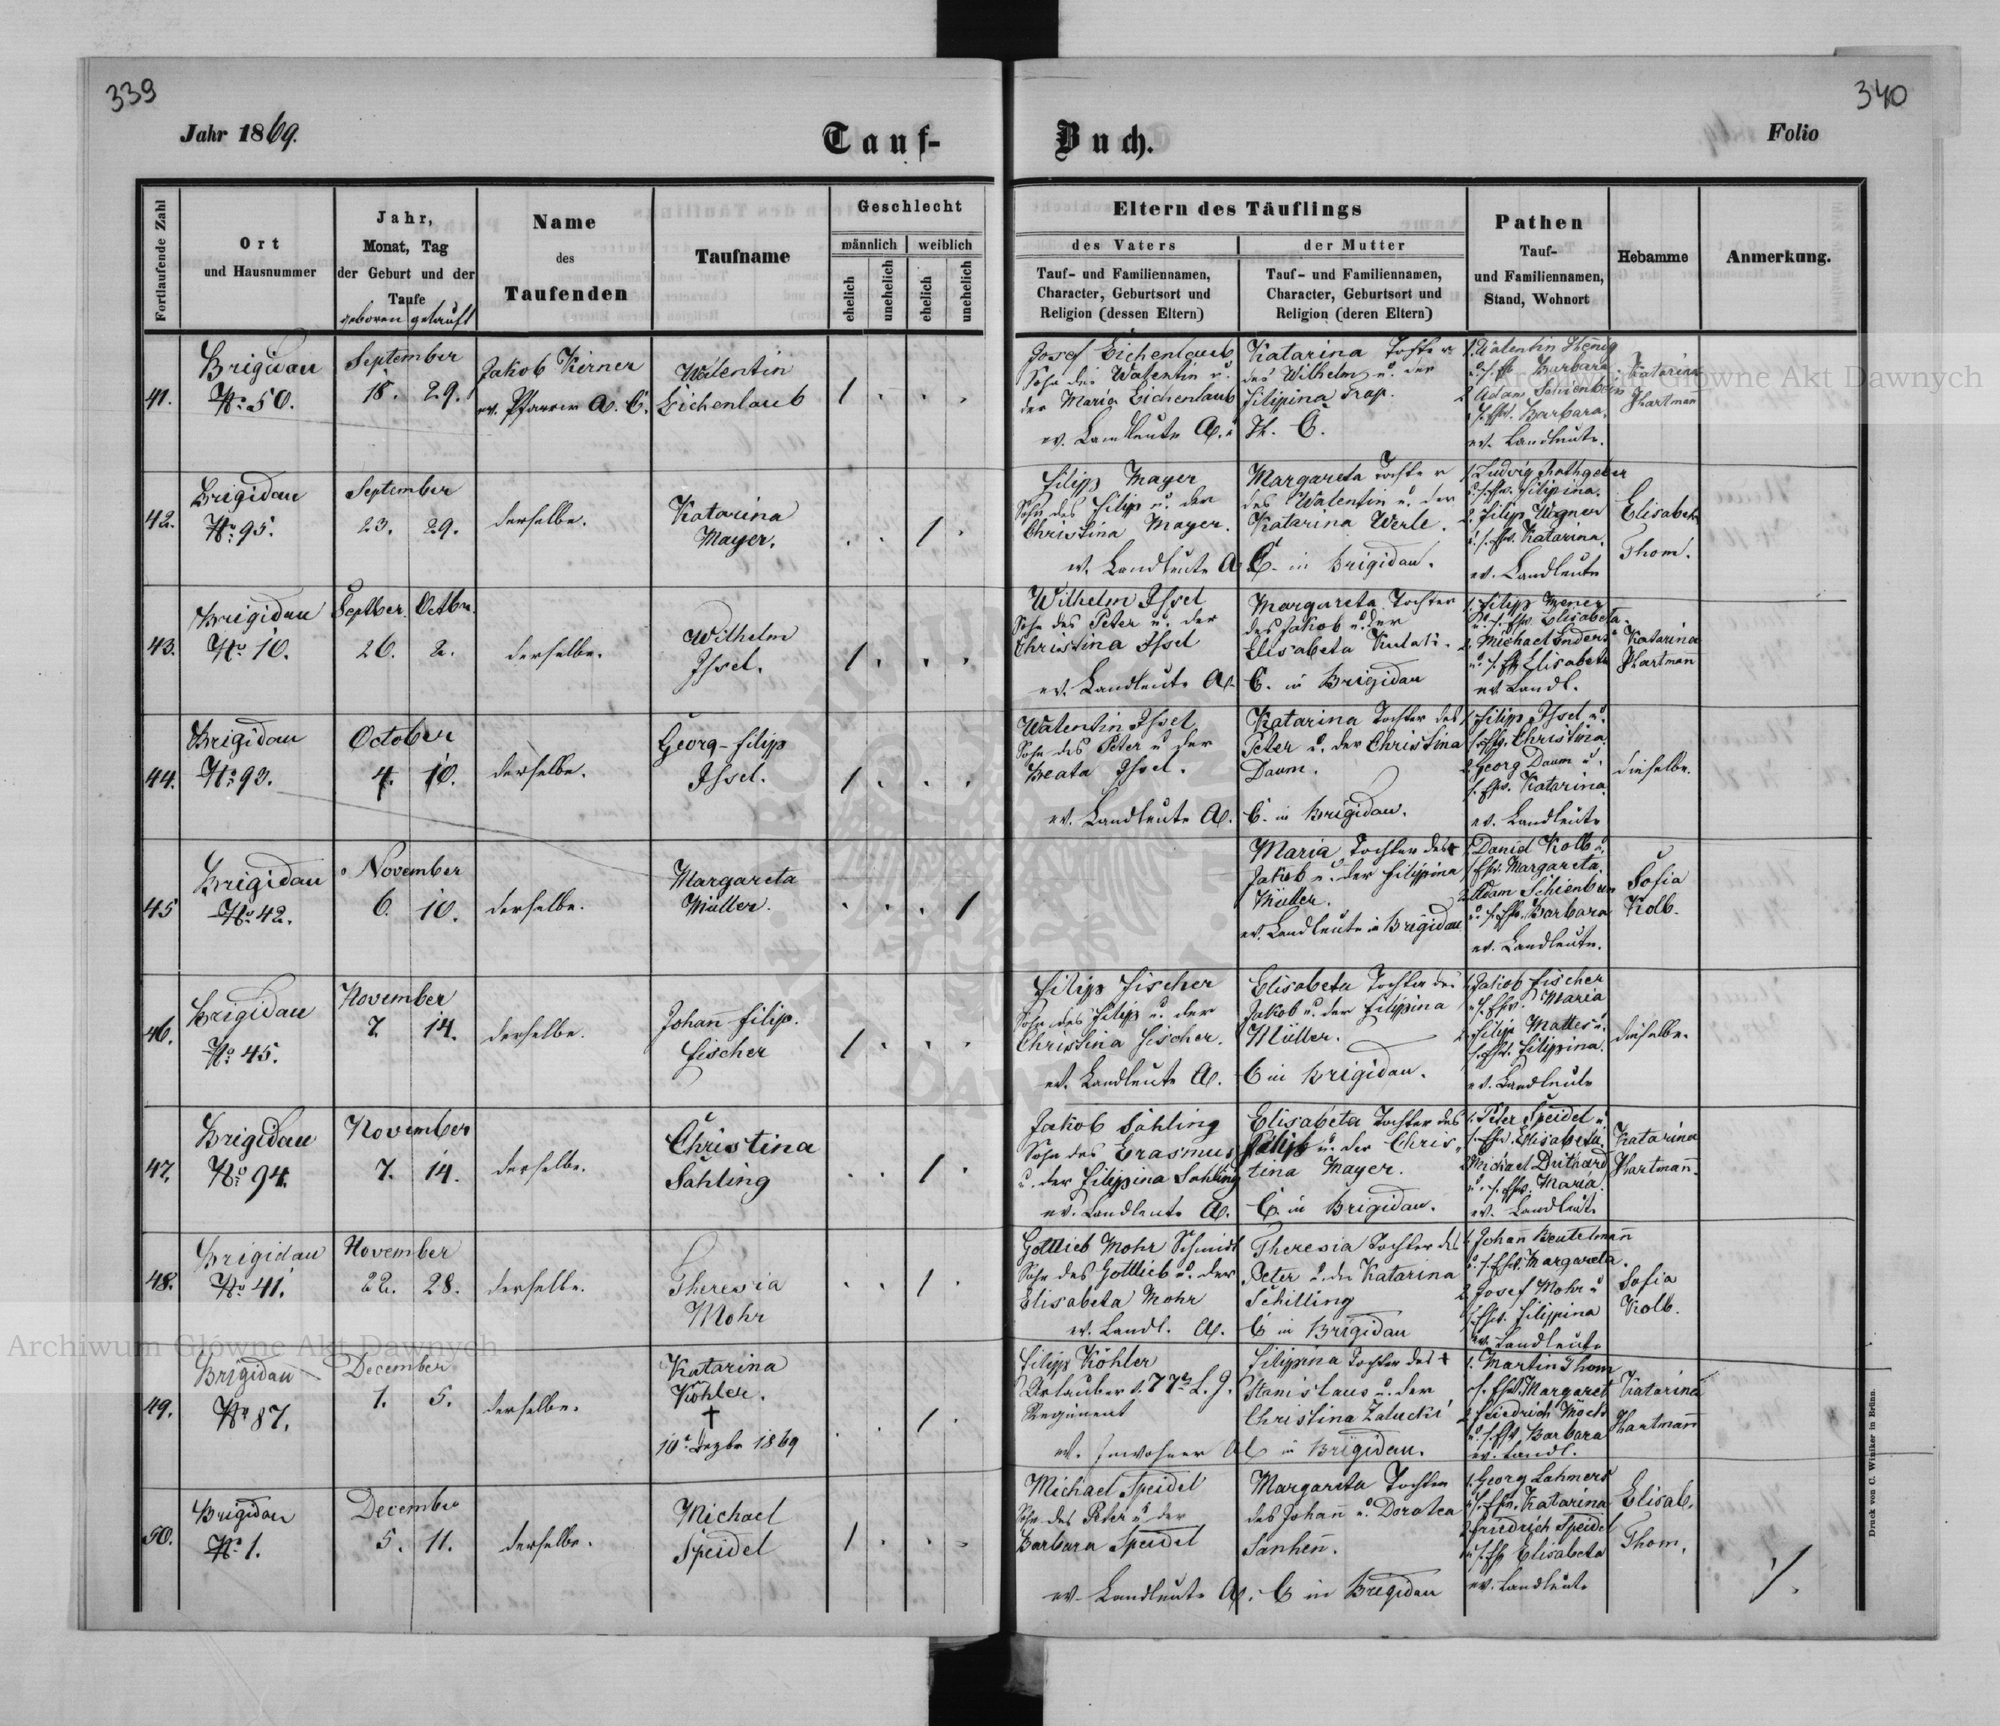 339
340
Jahr 1869.
Tauf-
Buch.
Folio
Fortlaufende Zahl
Ort
und Hausnummer
Jahr,
Monat, Tag
der Geburt und der
Taufe
geboren getauft
Name
des
Taufenden
Taufname
Geschlecht
männlich
weiblich
ehelich
unehelich
ehelich
unehelich
Eltern des Täuflings
des Vaters
der Mutter
Tauf- und Familiennamen,
Character, Geburtsort und
Religion (dessen Eltern)
Tauf- und Familiennamen,
Character, Geburtsort und
Religion (deren Eltern)
Pathen
Tauf-
und Familiennamen,
Stand, Wohnort
Hebamme
Anmerkung.
41.
Brigidau
No 50.
September
18. 29.
Jakob Kerner
ev. Pfarrer A. C.
Valentin
Eichenlaub
1 . . .
Josef Eichenlaub
Sohn des Valentin u.
der Maria Eichenlaub
ev. Landleute A. u
Katarina Tochter
des Wilhelm u. der
Filippina Trap.
H. C.
1. Valentin
u. s. Ehw. Barbara
2. Adam
s. Ehw. Barbara.
ev. Landleute.
Katarina
Hartman
42.
Brigidau
No 95.
September
23. 29.
derselbe.
Katarina
Mayer.
. . 1 .
Filipp Mayer
Sohn des Filip u. der
Christina Mayer.
ev. Landleute A.
Margareta Tochter
des Valentin u. der
Katarina Werle.
C. in Brigidau.
1. Ludvig Rothgeber
u. s. Ehw. Filipina.
2. Filip Wagner
u. s. Ehw. Katarina.
ev. Landleute
Elisabeth
Thom.
43.
Brigidau
No 10.
Septber. Octbr.
26. 2.
derselbe.
Wilhelm
Issel.
1 . . .
Wilhelm Issel
Sohn des Peter u. der
Christina Issel
ev. Landleute A.
Margareta Tochter
des Jakob u. der
Elisabeta
C. in Brigidau
1. Filipp
u. s. Ehw. Elisabeta.
2. Michael Enders
u. s. Ehw. Elisabeta
ev. Landl.
Katarina
Hartmann
44.
Brigidau
No 93.
October
4. 10.
derselbe.
Georg-Filip
Issel.
1 . . .
Valentin Issel
Sohn des Peter u. der
Beata Issel.
ev. Landleute A.
Katarina Tochter des
Peter u. der Christina
Daum.
C. in Brigidau.
1. Filipp Issel u.
s. Ehw. Christina.
2. Georg Daum u.
s. Ehw. Katarina.
ev. Landleute
dieselbe.
45
Brigidau
No 42.
November
6. 10.
derselbe.
Margareta
Müller.
. . . 1
Maria Tochter des +
Jakob u. der Filippina
Müller.
ev. Landleute in Brigidau
1. Daniel Kolb u.
s. Ehw. Margareta.
2. Adam
u. s. Ehw. Barbara
ev. Landleute.
Sofia
Kolb.
46.
Brigidau
No 45.
November
7. 14.
derselbe.
Johann Filip.
Fischer
1 . . .
Filipp Fischer
Sohn des Filip u. der
Christina Fischer.
ev. Landleute A.
Elisabeta Tochter des
Jakob u. der Filippina
Müller.
C in Brigidau.
1. Jakob Fischer
u. s. Ehw. Maria
2. Filipp Mattes u.
s. Ehw. Filippina.
ev. Landleute
dieselbe.
47.
Brigidau
No 94.
November
7. 14.
derselbe.
Christina
Sahling
. . 1 .
Jakob Sahling
Sohn des Erasmus
u. der Filippina Sahling
ev. Landleute A.
Elisabeta Tochter des
u. der Chris-
tina Mayer.
C. in Brigidau.
1. Peter Speidel u.
s. Ehw. Elisabeta.
2. Michael
u. s. Ehw. Maria.
ev. Landleute
Katarina
Hartmann.
48.
Brigidau
No 41.
November
22. 28.
derselbe.
Theresia
Mohr
. . 1 .
Gottlieb Mohr Schmidt
Sohn des Gottlieb u. der
Elisabeta Mohr
ev. Landl. A.
Theresia Tochter des
Peter u. der Katarina
Schilling
C in Brigidau
1. Johann Beutelmann
u. s. Ehw. Margareta.
2. Josef Mohr u
s. Ehw. Filippina
ev. Landleute
Sofia
Kolb.
49.
Brigidau
No 87.
December
1. 5.
derselbe.
Katarina
Köhler.
†
10. Dezbr 1869
. . 1 .
Filipp Köhler
Urlauber d. 77. L. J.
Regiment
ev. Inwohner A
Filippina Tochter des +
Stanislaus u. der
Christina Zalucki
C in Brigidau.
1. Martin Thom
s. Ehw. Margaret
2. Friedrich
u. s. Ehw. Barbara
ev. Landl.
Katarina
Hartmann
50.
Brigidau
No 1.
December
5. 11.
derselbe.
Michael
Speidel
1 . . .
Michael Speidel
Sohn des Peter u. der
Barbara Speidel
ev. Landleute A.
Margareta Tochter
des Johann u. Dorotea
C in Brigidau
1. Georg Lahmers
u. s. Ehw. Katarina
2. Friedrich Speidel
u. s. Ehw. Elisabeta
ev. Landleute
Elisab.
Thom.
Druck von C. Winiker in Brünn.
Archiwum Główne Akt Dawnych
Archiwum Główne Akt Dawnych